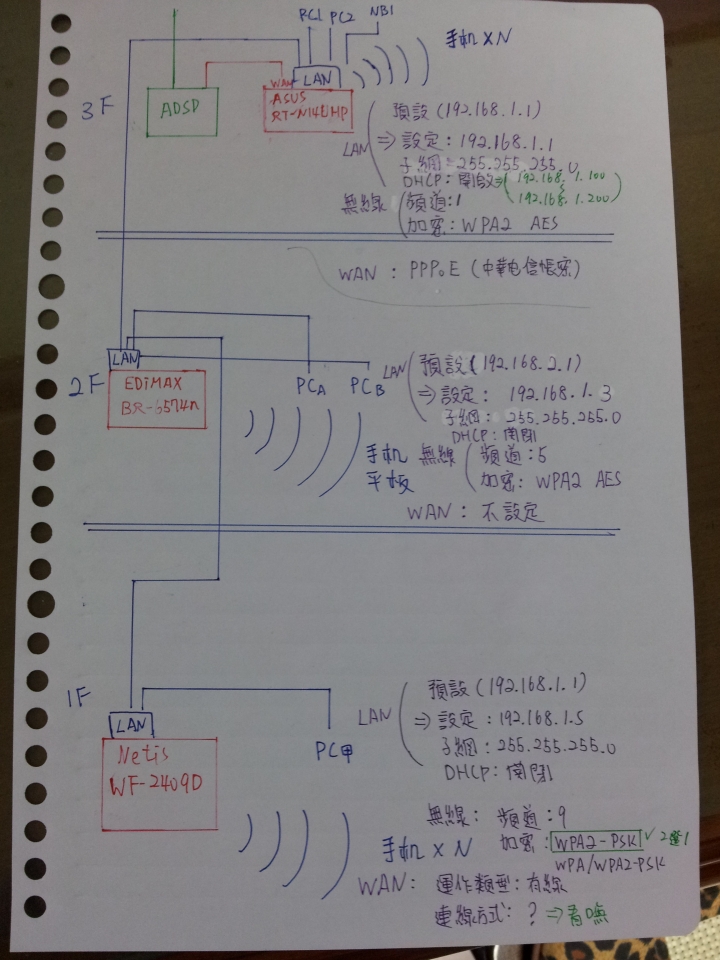 PC1 PC2 NB1
手机 X N
WAN LAN
3F
ADSL
ASUS
RT-N14UHP
預設 (192.168.1.1)
LAN ⇒ 設定 : 192.168.1.1
子網 : 255.255.255.0
DHCP : 開啟 ⇒ (192.168.1.100
192.168.1.200)
無線 頻道 : 1
加密 : WPA2 AES
WAN : PPPoE (中華电信帳密)
2F
LAN
EDiMAX
BR-6574n
PCA PCB
LAN 預設 (192.168.2.1)
⇒ 設定 : 192.168.1.3
子網 : 255.255.255.0
DHCP : 関閉
手机
平板
無線 頻道 : 5
加密 : WPA2 AES
WAN : 不設定
1F
LAN
Netis
WF-2409D
PC甲
LAN 預設 (192.168.1.1)
⇒ 設定 : 192.168.1.5
子網 : 255.255.255.0
DHCP : 関閉
手机 X N
無線 : 頻道 : 9
加密 : WPA2-PSK ✓ 2選1
WPA/WPA2-PSK
WAN : 運作類型 : 有線
連線方式 : ? ⇒